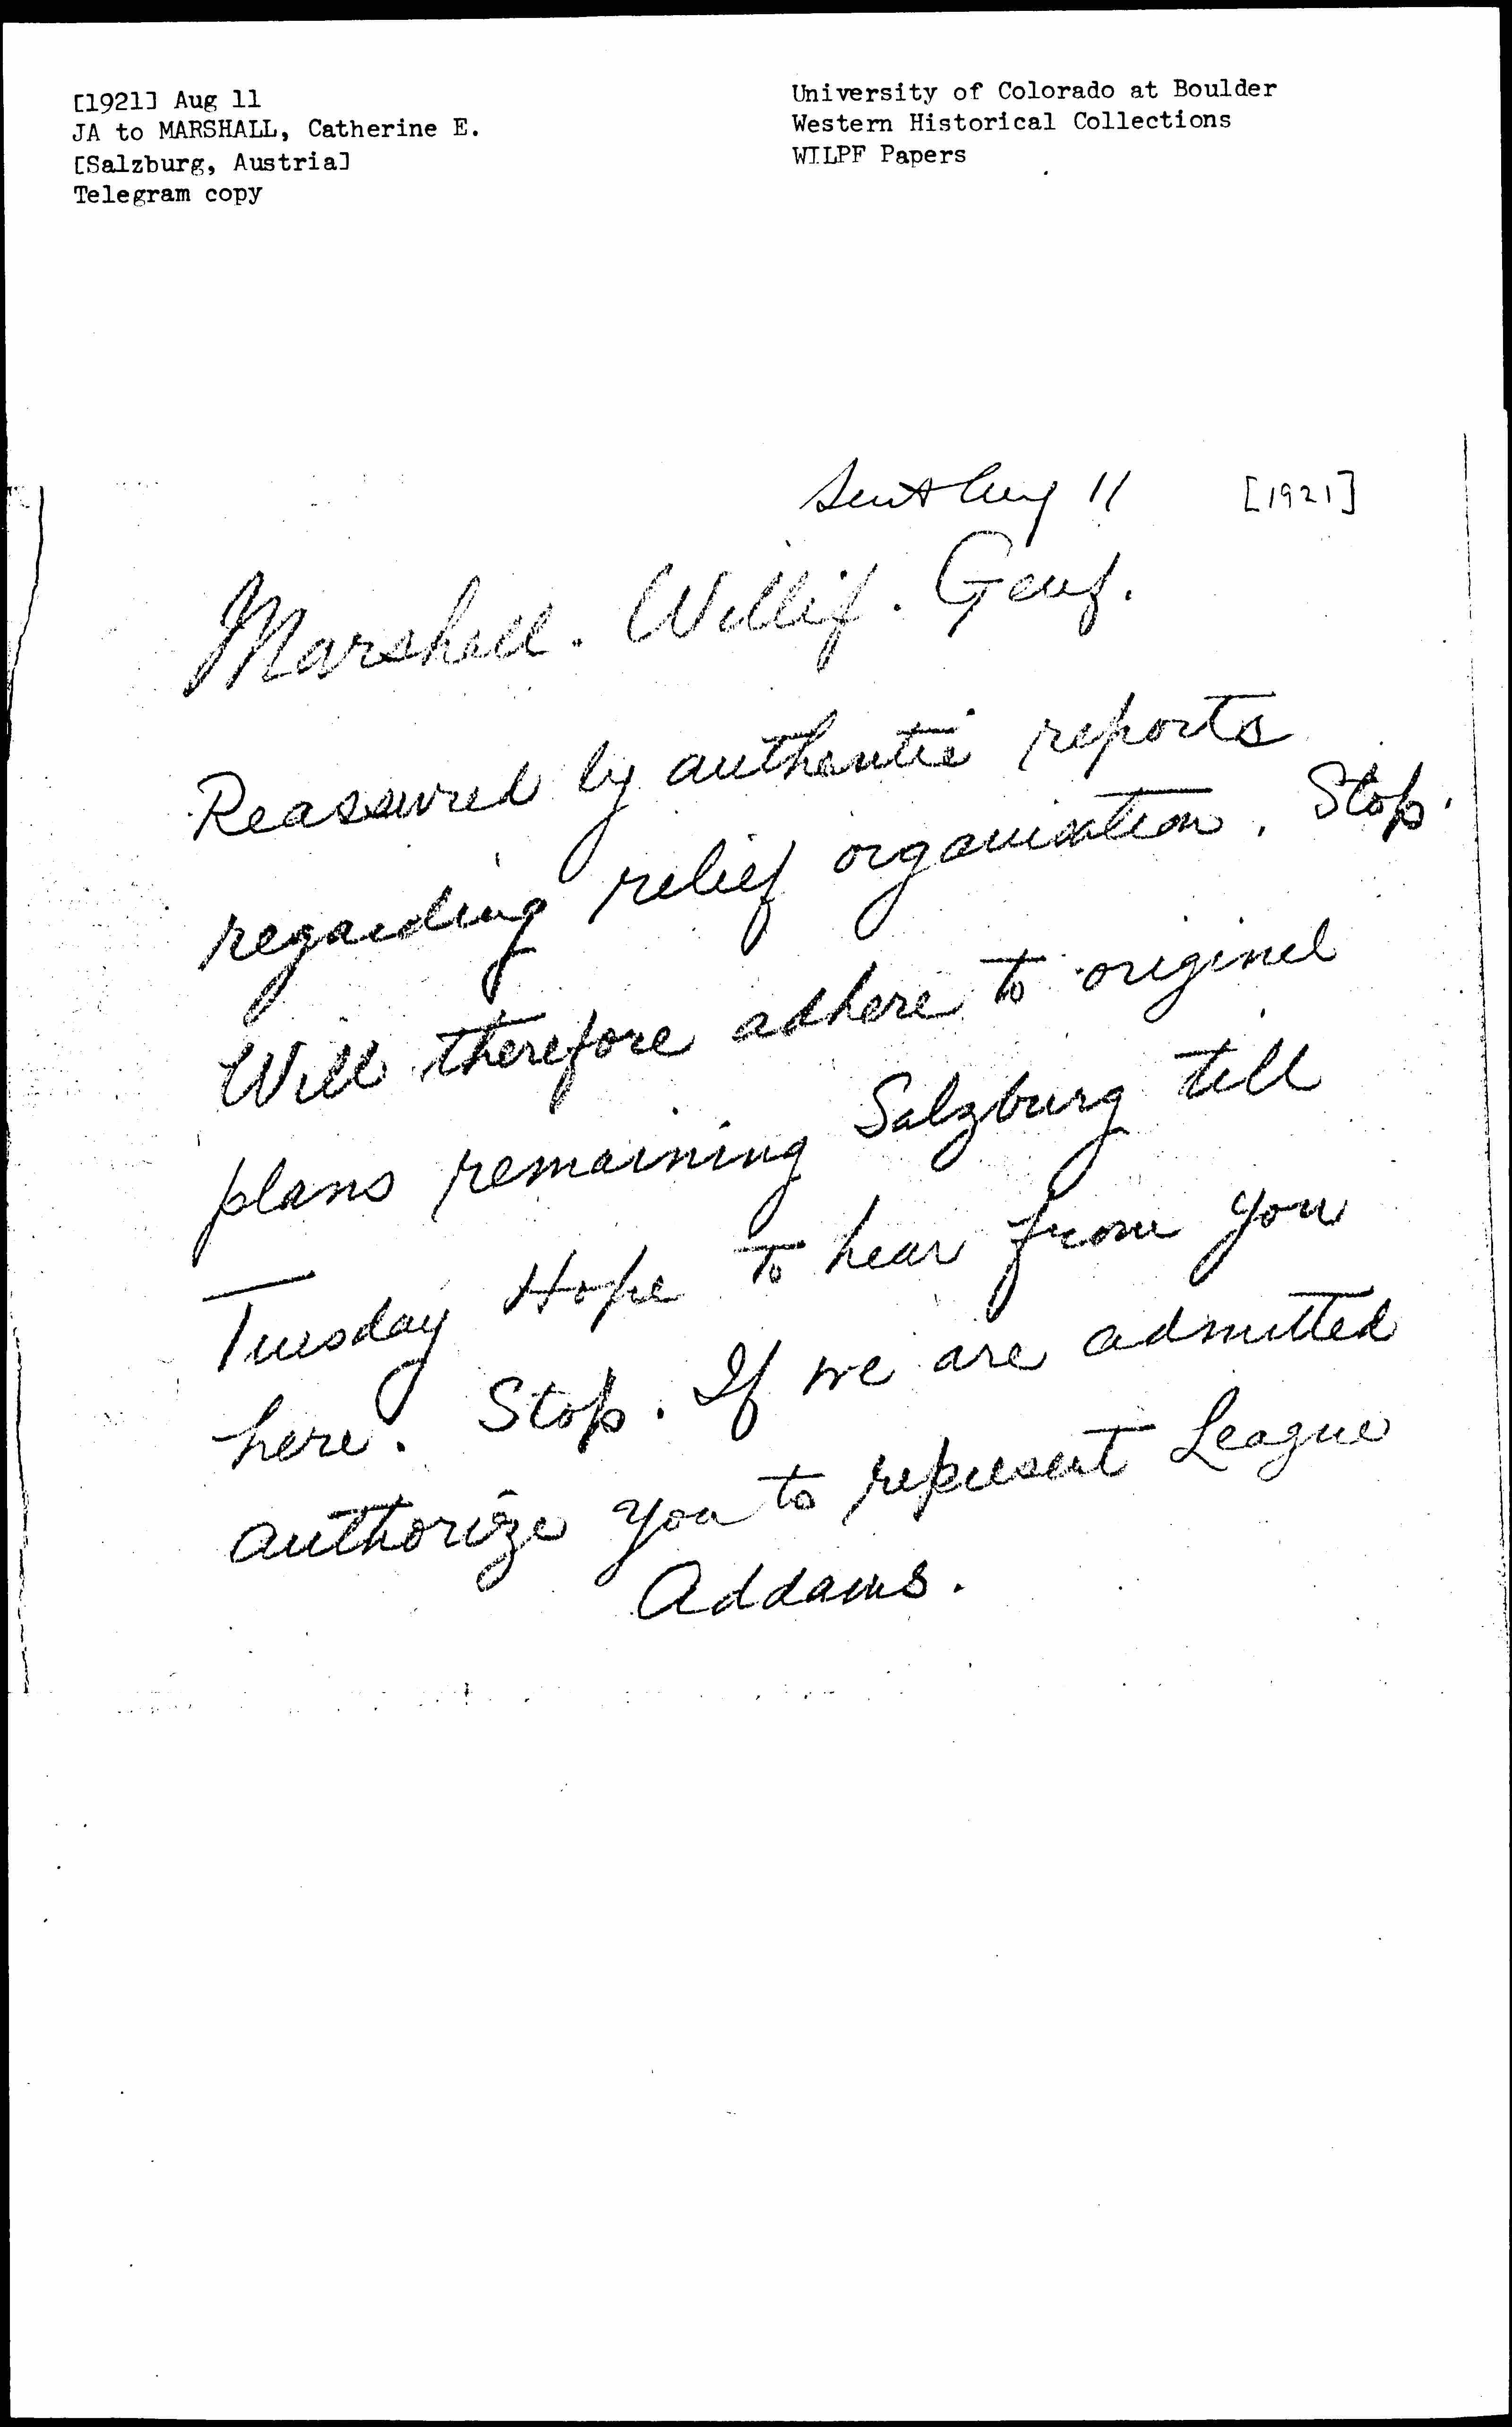 [1921] Aug 11
JA to MARSHALL, Catherine E.
[Salzburg, Austria]
Telegram copy
University of Colorado at Boulder
Western Historical Collections
WILPF Papers
Sent Aug 11 [1921]
Marshall. Willif. Genf.
Reassured by authentic reports
regarding relief organisation. Stop.
Will therefore adhere to original
plans remaining Salzburg till
Tuesday Hope to hear from you
here. Stop. If we are admitted
authorize you to represent League
Addams.